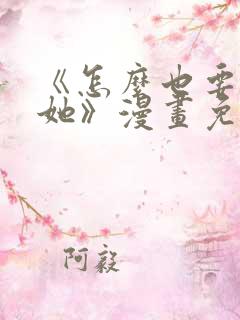 《怎麼也要
她》漫畫免
阿毅